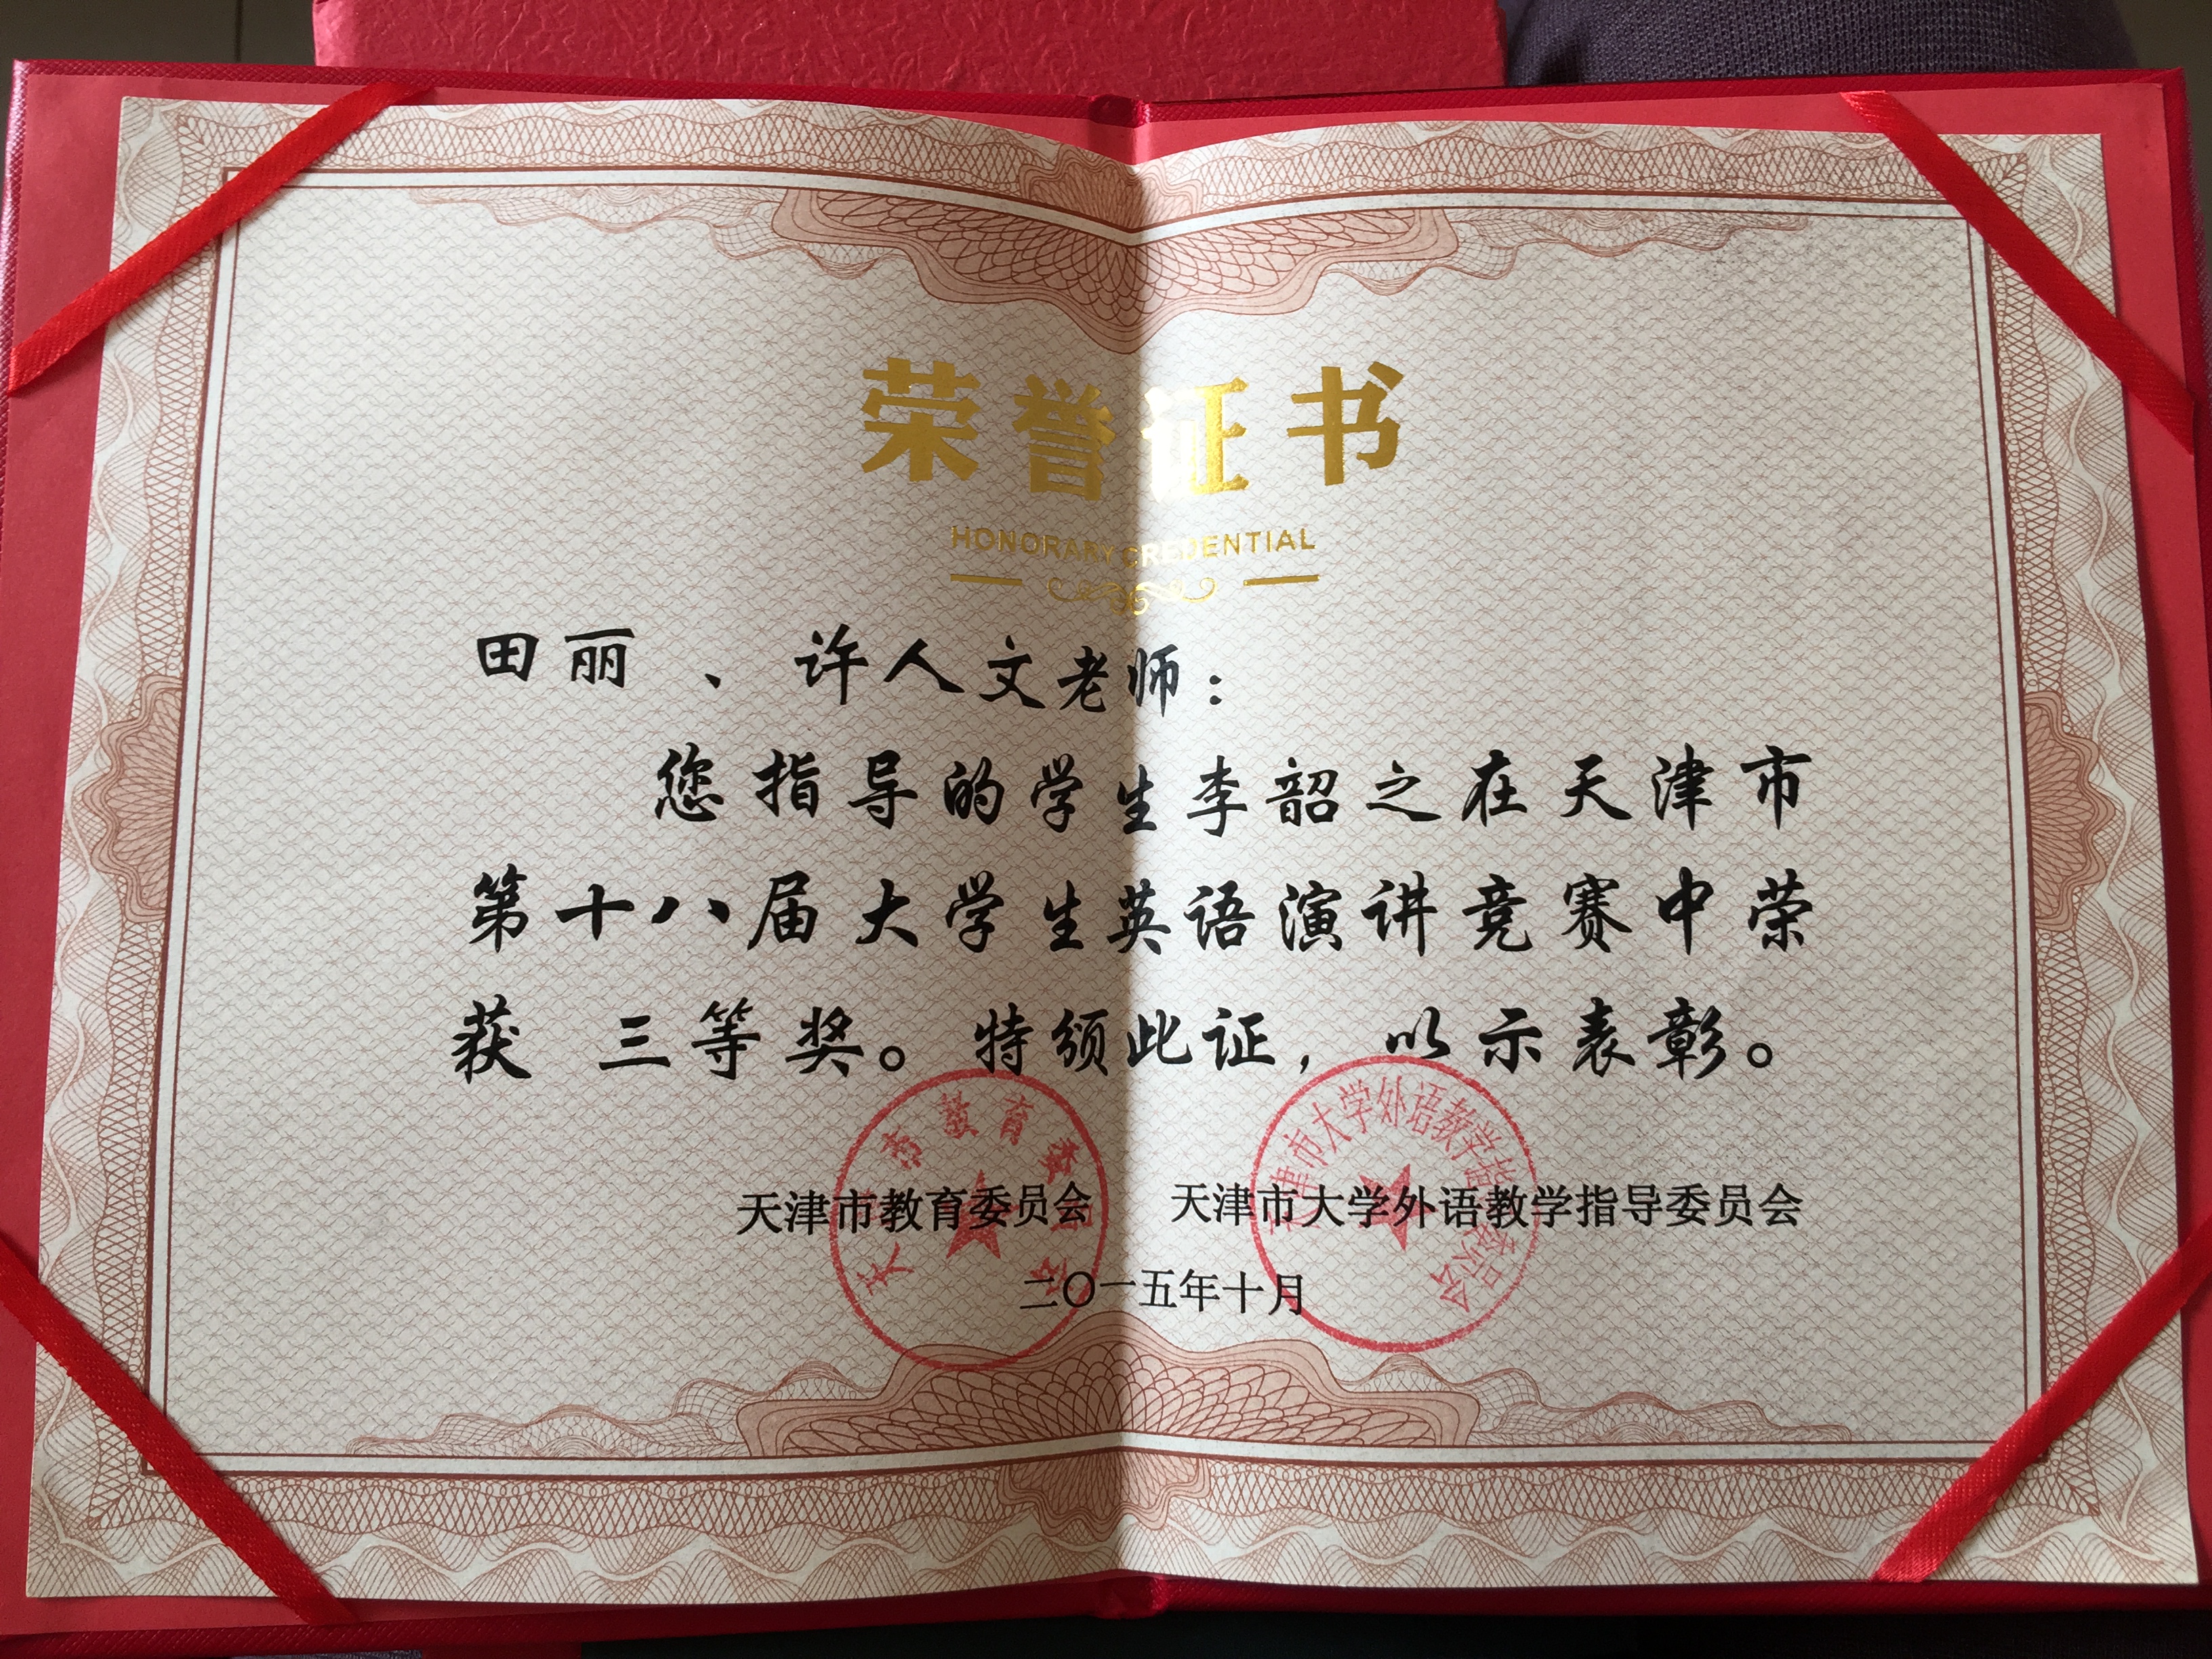 荣誉证书
HONORARY CREDENTIAL
田丽、许人文老师：
您指导的学生李韶之在天津市
第十八届大学生英语演讲竞赛中荣
获 三等奖。特颁此证，以示表彰。
天津市教育委员会 天津市大学外语教学指导委员会
二〇一五年十月
天津市教育委员会
天津市大学外语教学指导委员会